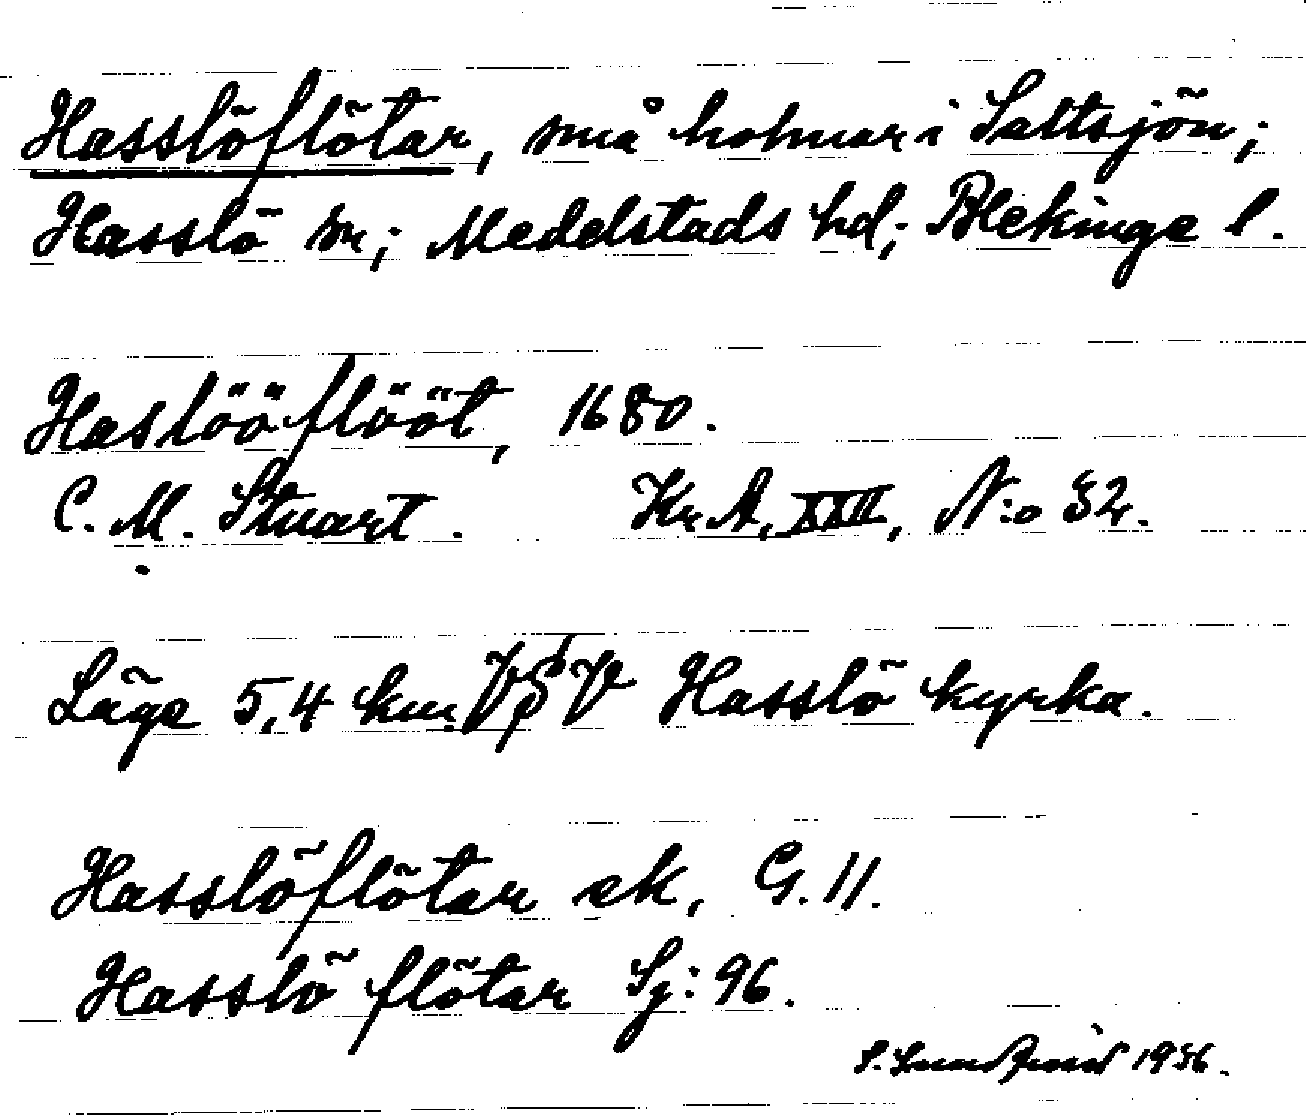 Hasslöflötar, små holmar i Saltsjön;
Hasslö sn; Medelstads hd; Blekinge l.
Haslööflööt, 1680.
C. M. Stuart. Kr.A, XXII, N:o 32.
Läge 5,4 km. VSV Hasslö kyrka.
Hasslöflötar ek, G. 11.
Hasslö flötar Sj: 96.
S. 1936.